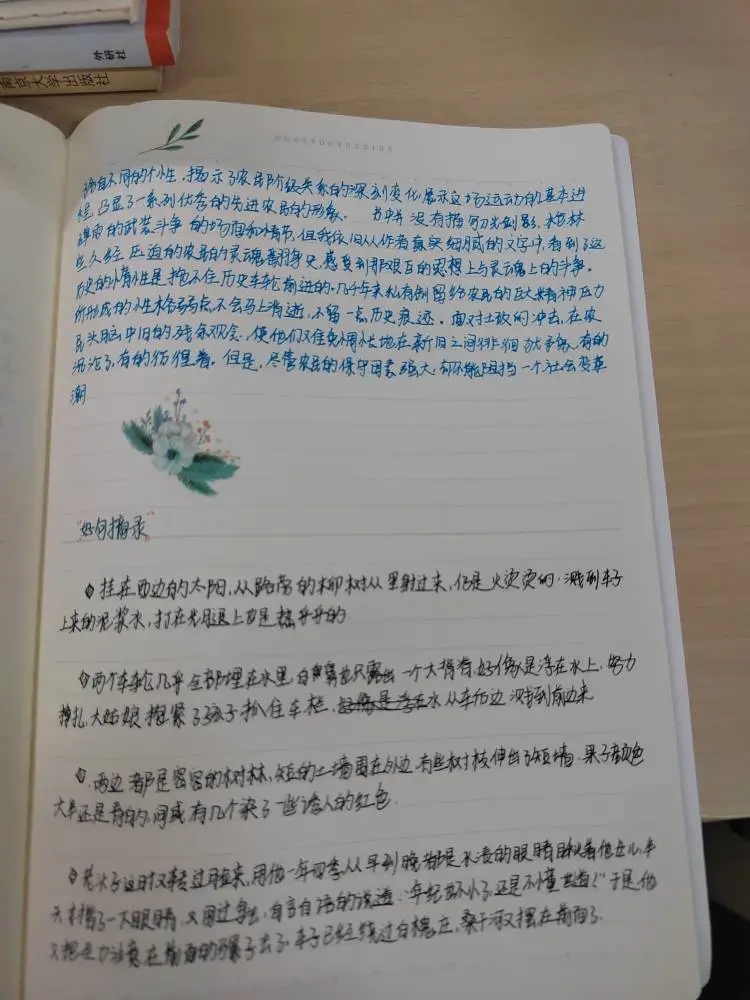 外研社
南京大学出版社
拥有不同的个性,揭示了农民阶级关系的深刻变化,展示这场运动的基本进
程,凸显了一系列优秀的先进农民的形象。 书中并没有描写刀光剑影、枪林
弹雨的武装斗争的场面和情节,但我依旧从作者真实细腻的文字中,看到了这
些久经压迫的农民的灵魂翻身史,感受到那艰巨的思想上与灵魂上的斗争。
历史的惰性是抱不住历史车轮前进的。几千年来私有制留给农民的巨大精神压力
所形成的性格弱点,不会马上消逝,不留一点历史痕迹。面对土改的冲击,在农
民头脑中旧的残余观念,使他们难免惆怅地在新旧之间徘徊犹豫,有的
沉沦了,有的彷徨着。但是,尽管农民的保守因素强大,却不能阻挡一个社会变革
潮
"好句摘录"
挂在西边的太阳,从路旁的柳树丛里射过来,仍是火烫烫的。溅到车子
上来的泥浆水,打在光腿上也是热乎乎的
两个车轮几乎全部埋在水里,白鼻也只露出一个大背脊,好像是浮在水上,努力
挣扎,大姑娘抱紧了孩子扒住车栏,好像是浮在水从车后边溅到前边来
两边都是密密的树林,短的土墙围在外边,有些树枝伸出了短墙,果子颜色
大半还是青的,间或有几个染了一些诱人的红色
老头子这时又转过脸来,用他一年四季从早到晚都是水渍的眼睛瞅着他女儿,半
天才揩了一下眼睛,又回过身去,自言自语的说道:"年纪也不小了,还是不懂世道!"于是他
又把注意力在前面的骡子去了。车子已经绕过白槐庄,桑干河又摆在前面了。